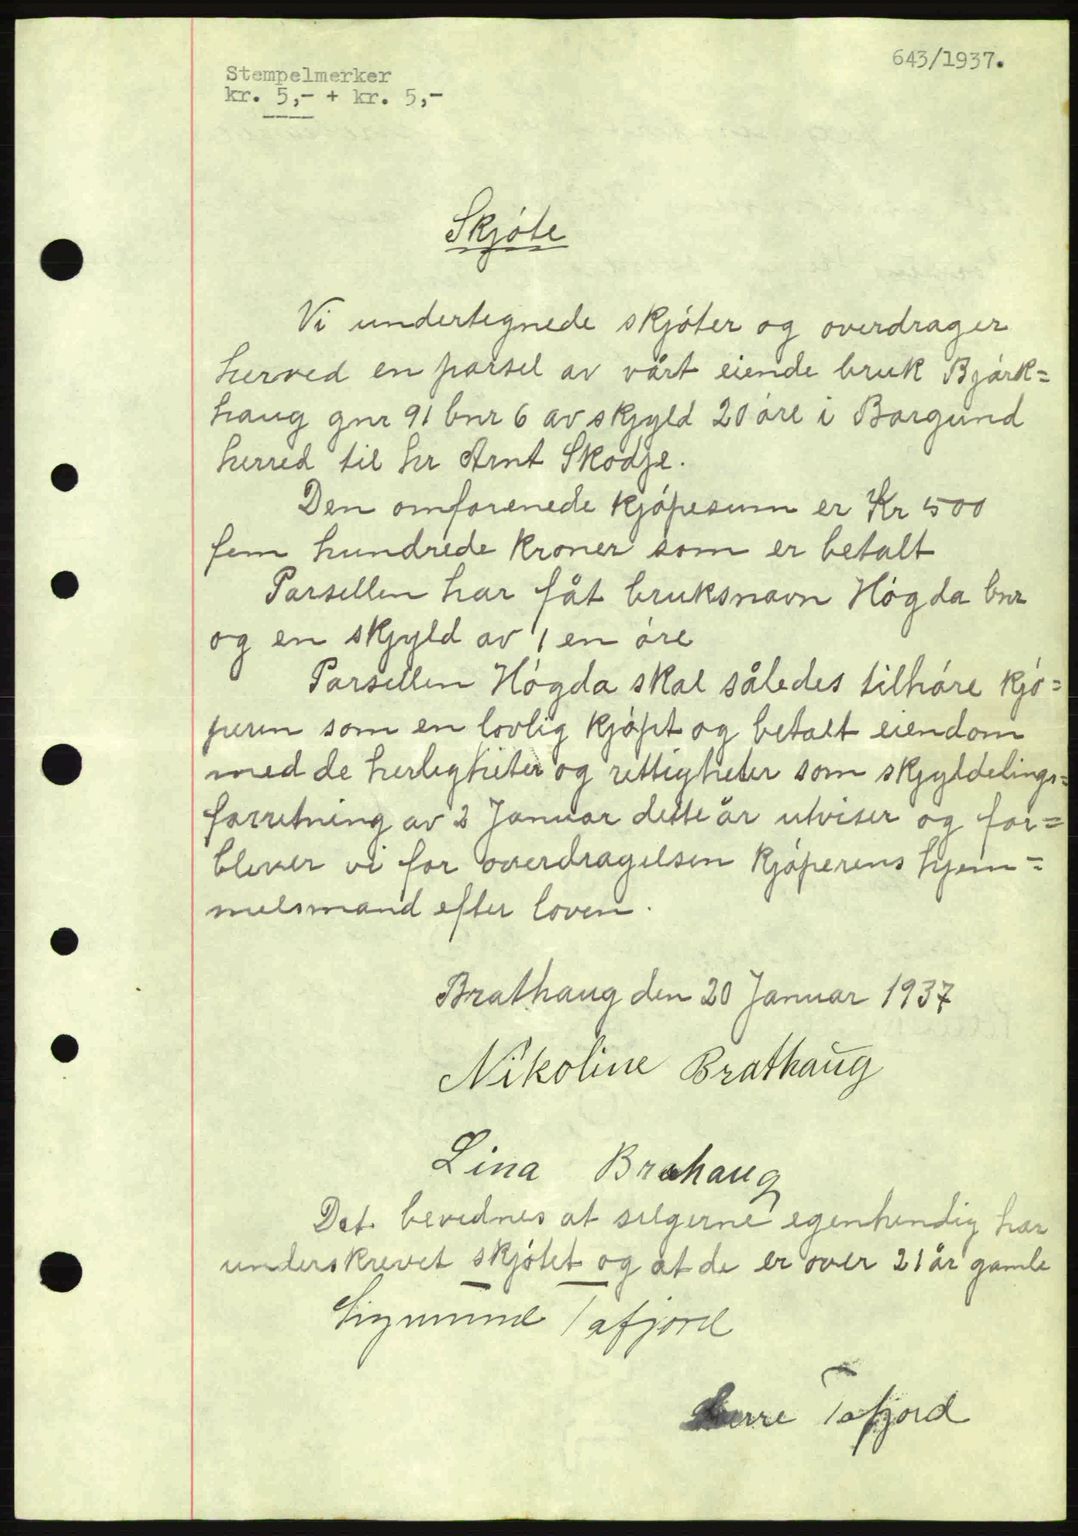 643/1937.
Stempelmerker
kr. 5,- + kr. 5,-
Skjóte
Vi undertegnede skjóter og overdrager
herved en parsel av vårt eiende bruk Bjórk=
haug gnr 91 bnr 6 av skjyld 20 óre i Borgund
herred til hr Arnt Skodje.
Den omforenede kjópesum er Kr 500
fem hundrede kroner som er betalt
Parsellen har fåt bruksnavn Hógda bnr
og en skjyld av 1 en óre
Parsellen Hógda skal således tilhóre kjó=
peren som en lovlig kjópt og betalt eiendom
med de herligheter og rettigheter som skjyldelings=
forretning av 2 Januar dette år utviser og for=
blever vi for overdragelsen kjóperens hjem=
melsmand efter loven.
Brathaug den 20 Januar 1937
Nikoline Brathaug
Lina Brahaug
Det bevidnes at selgerne egenhendig har
underskrevet skjótet og at de er over 21 år gamle
Sigmund Tafjord
Tafjord